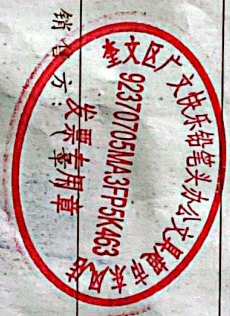 销售方:
奎文区广文快乐铅笔头办公文具超市东风店
92370705MA3FP5K463
发票专用章